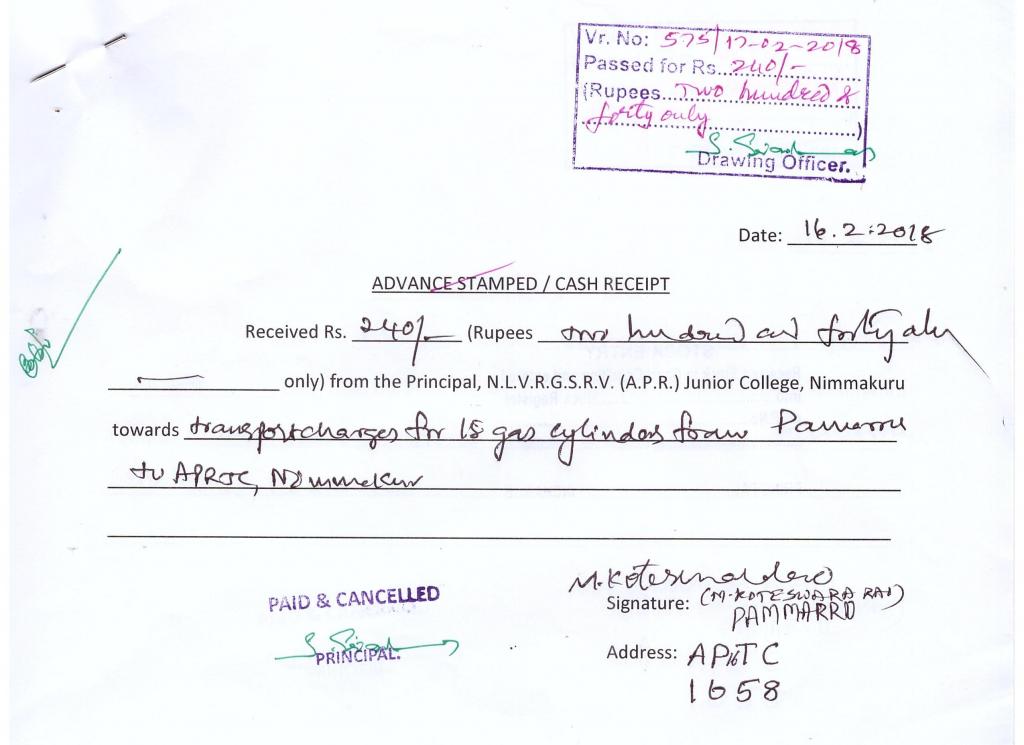 Vr. No: 575/17-02-2018
Passed for Rs. 240/-
(Rupees Two hundred &
forty only
)
Drawing Officer.
Date: 16.2.2018
ADVANCE STAMPED / CASH RECEIPT
Received Rs. 240/- (Rupees two hundred and forty only
only) from the Principal, N.L.V.R.G.S.R.V. (A.P.R.) Junior College, Nimmakuru
towards transport charges for 18 gas cylinders from Pamarru
to APRJC, Nimmakuru
PAID & CANCELLED
PRINCIPAL.
M. Koteswara Rao
Signature: (M. KOTESWARA RAO)
PAMMARRU
Address: AP16TC
1658